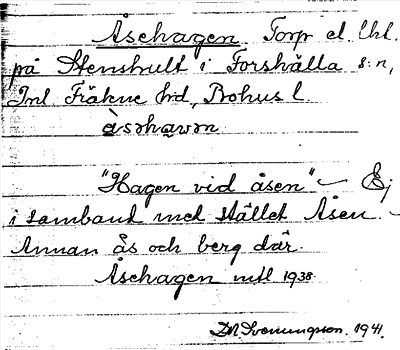 Åsehagen Torp el. lht.
på Stenshult i Forshälla s:n,
Inl Fräkne hd, Bohus l
åsəhavən
"Hagen vid åsen" – Ej
i samband med stället Åsen. –
Annan ås och berg där.
Åsehagen mtl 1938.
1941.